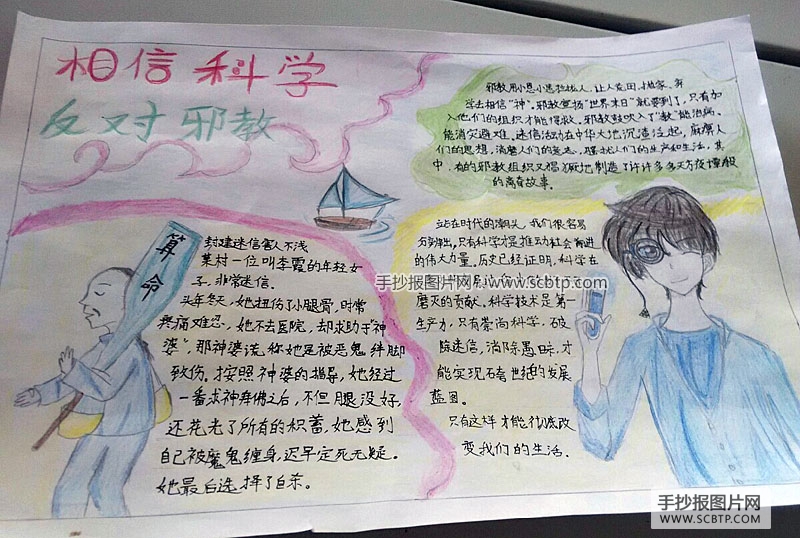 相信科学
反对邪教
邪教用小恩小惠拉拢人,让人卖田、抛家、弃
学去相信“神”。邪教宣扬“世界末日”就要到了,只有加
入他们的组织才能得救。邪教鼓吹入了“教”能治病、
能消灾避难。迷信活动在中华大地沉渣泛起,麻痹人
们的思想,消磨人们的意志,骚扰人们的生产和生活,其
中,有的邪教组织又猖獗地制造了许许多多天方夜谭般
的离奇故事。
算命
封建迷信害人不浅
某村一位叫李霞的年轻女
子,非常迷信。
头年冬天,她扭伤了小腿骨,时常
疼痛难忍,她不去医院,却求助于神
婆”,那神婆谎称她是被恶鬼绊脚
致伤。按照神婆的指导,她经过
一番求神拜佛之后,不但腿没好,
还花光了所有的积蓄,她感到
自己被魔鬼缠身,迟早定死无疑。
她最后选择了自杀。
站在时代的潮头,我们很容易
只有科学才是推动社会前进
的伟大力量。历史已经证明,科学在
磨灭的贡献。科学技术是第一
生产力,只有崇尚科学,破
除迷信,消除愚昧,才
能实现跨世纪的发展
蓝图。
只有这样才能彻底改
变我们的生活.
手抄报图片网——www.scbtp.com
手抄报图片网
WWW.SCBTP.COM